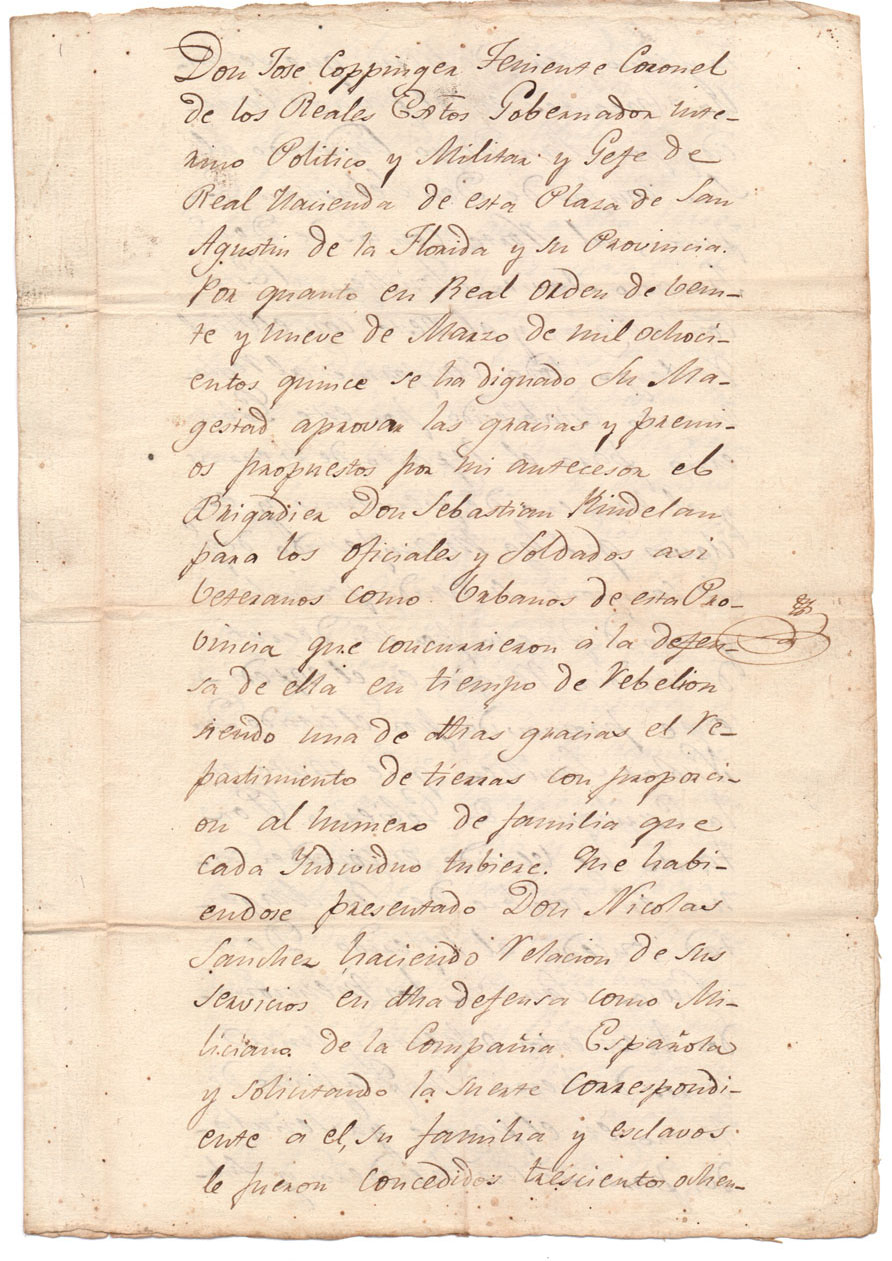 Don Jose Coppinger Teniente Coronel
de los Reales Extos Gobernador inte-
rino Politico y Militar y Gefe de
Real Hacienda de esta Plaza de San
Agustin de la Florida y su Provincia.
Por quanto en Real Orden de vein-
te y nueve de Marzo de mil ochoci-
entos quince se ha dignado Su Ma-
gestad aprovar las gracias y premi-
os propuestos por mi antecesor el
Brigadier Don Sebastian Kindelan
para los oficiales y Soldados asi
Veteranos como Urbanos de esta Pro-
vincia que concurrieron á la defen-
sa de ella en tiempo de rebelion
siendo una de dhas gracias el re-
partimiento de tierras con proporci-
on al numero de familia que
cada Individuo tubiere. Que habi-
endose presentado Don Nicolas
Sanchez haciendo relacion de sus
servicios en dha defensa como Mi-
liciano de la Compañia Española
y solicitando la suerte correspondi-
ente á el, su familia y esclavos
le fueron concedidos trescientos ochen-